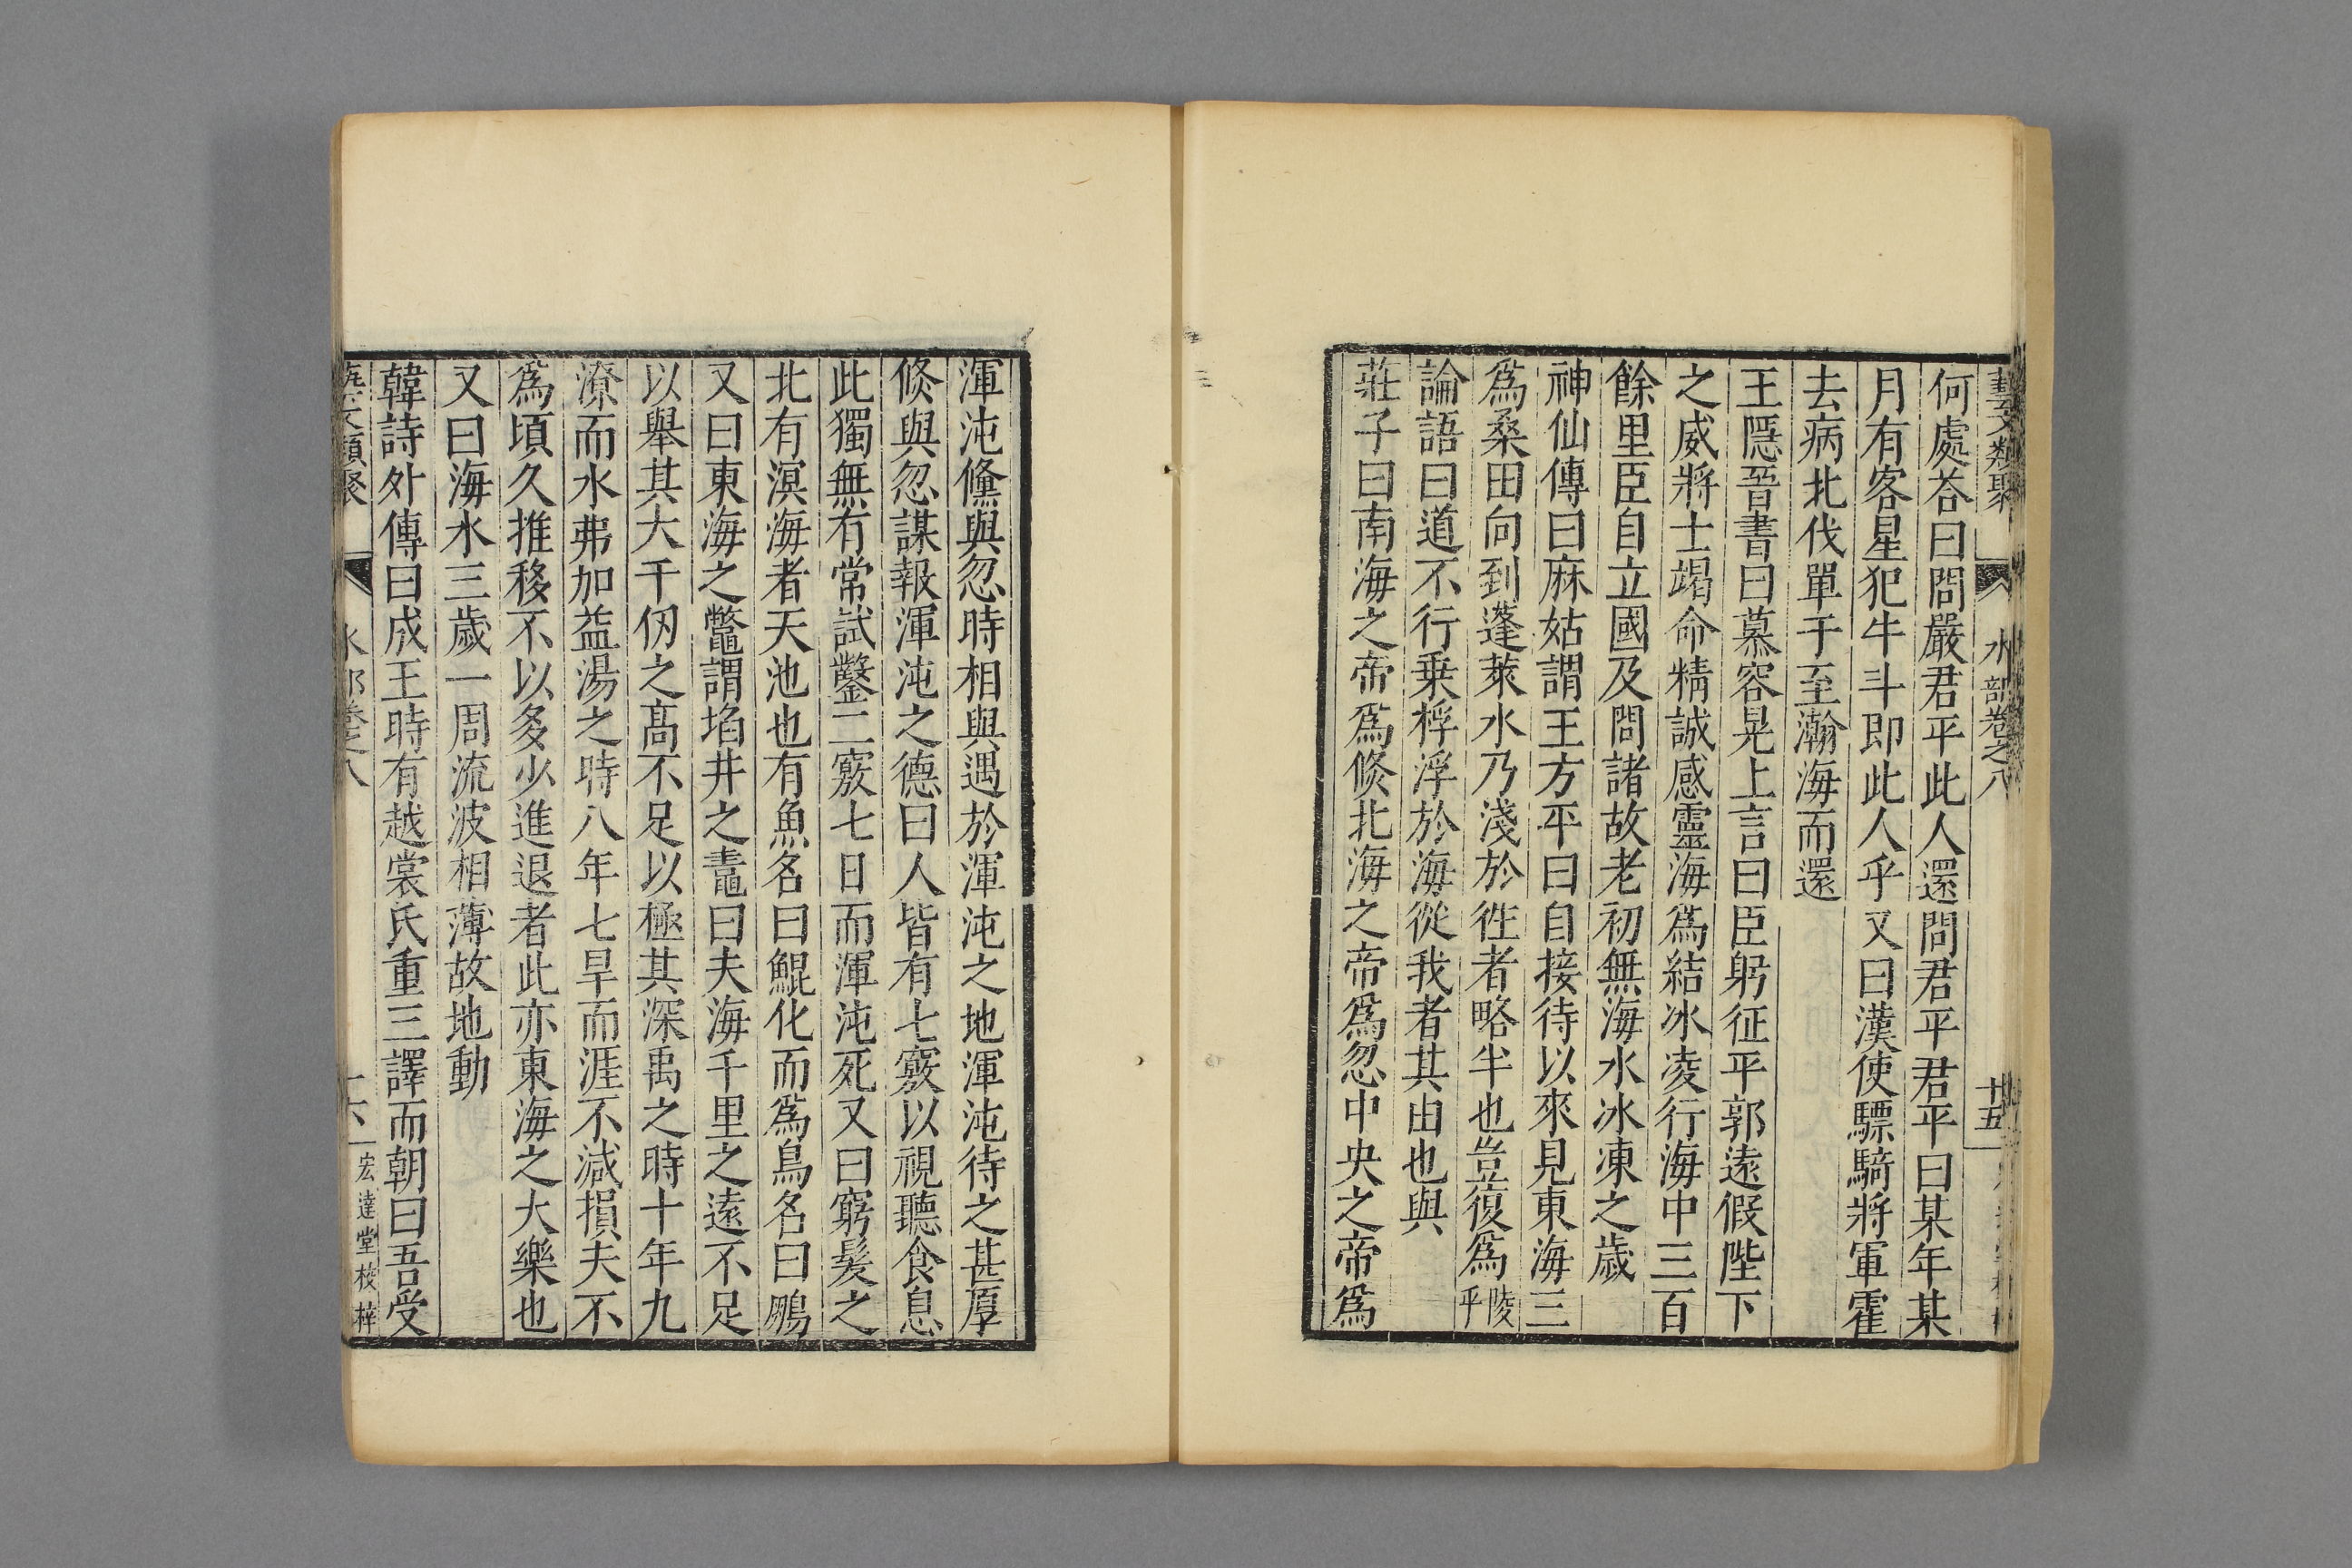 藝文類聚 水部卷之八 十五
何處荅曰問嚴君平此人還問君平君平曰某年某
月有客星犯牛斗即此人乎又曰漢使驃騎將軍霍
去病北伐單于至瀚海而還
王隱晉書曰慕容晃上言曰臣躬征平郭遠假陛下
之威將士竭命精誠感靈海爲結冰凌行海中三百
餘里臣自立國及問諸故老初無海水冰凍之歲
神仙傳曰麻姑謂王方平曰自接待以來見東海三
爲桑田向到蓬萊水乃淺於徃者略半也豈復爲陵平
論語曰道不行乗桴浮於海從我者其由也與
莊子曰南海之帝爲倏北海之帝爲忽中央之帝爲
渾沌儵與忽時相與遇於渾沌之地渾沌待之甚厚
倏與忽謀報渾沌之德曰人皆有七竅以視聽食息
此獨無有常試鑿二竅七日而渾沌死又曰窮髮之
北有溟海者天池也有魚名曰鯤化而爲鳥名曰鵬
又曰東海之鼈謂埳井之鼃曰夫海千里之遠不足
以舉其大千仞之高不足以極其深禹之時十年九
潦而水弗加益湯之時八年七旱而涯不減損夫不
爲頃久推移不以多少進退者此亦東海之大樂也
又曰海水三歲一周流波相薄故地動
韓詩外傳曰成王時有越裳氏重三譯而朝曰吾受
藝文類聚 水部卷之八 十六 宏達堂校梓